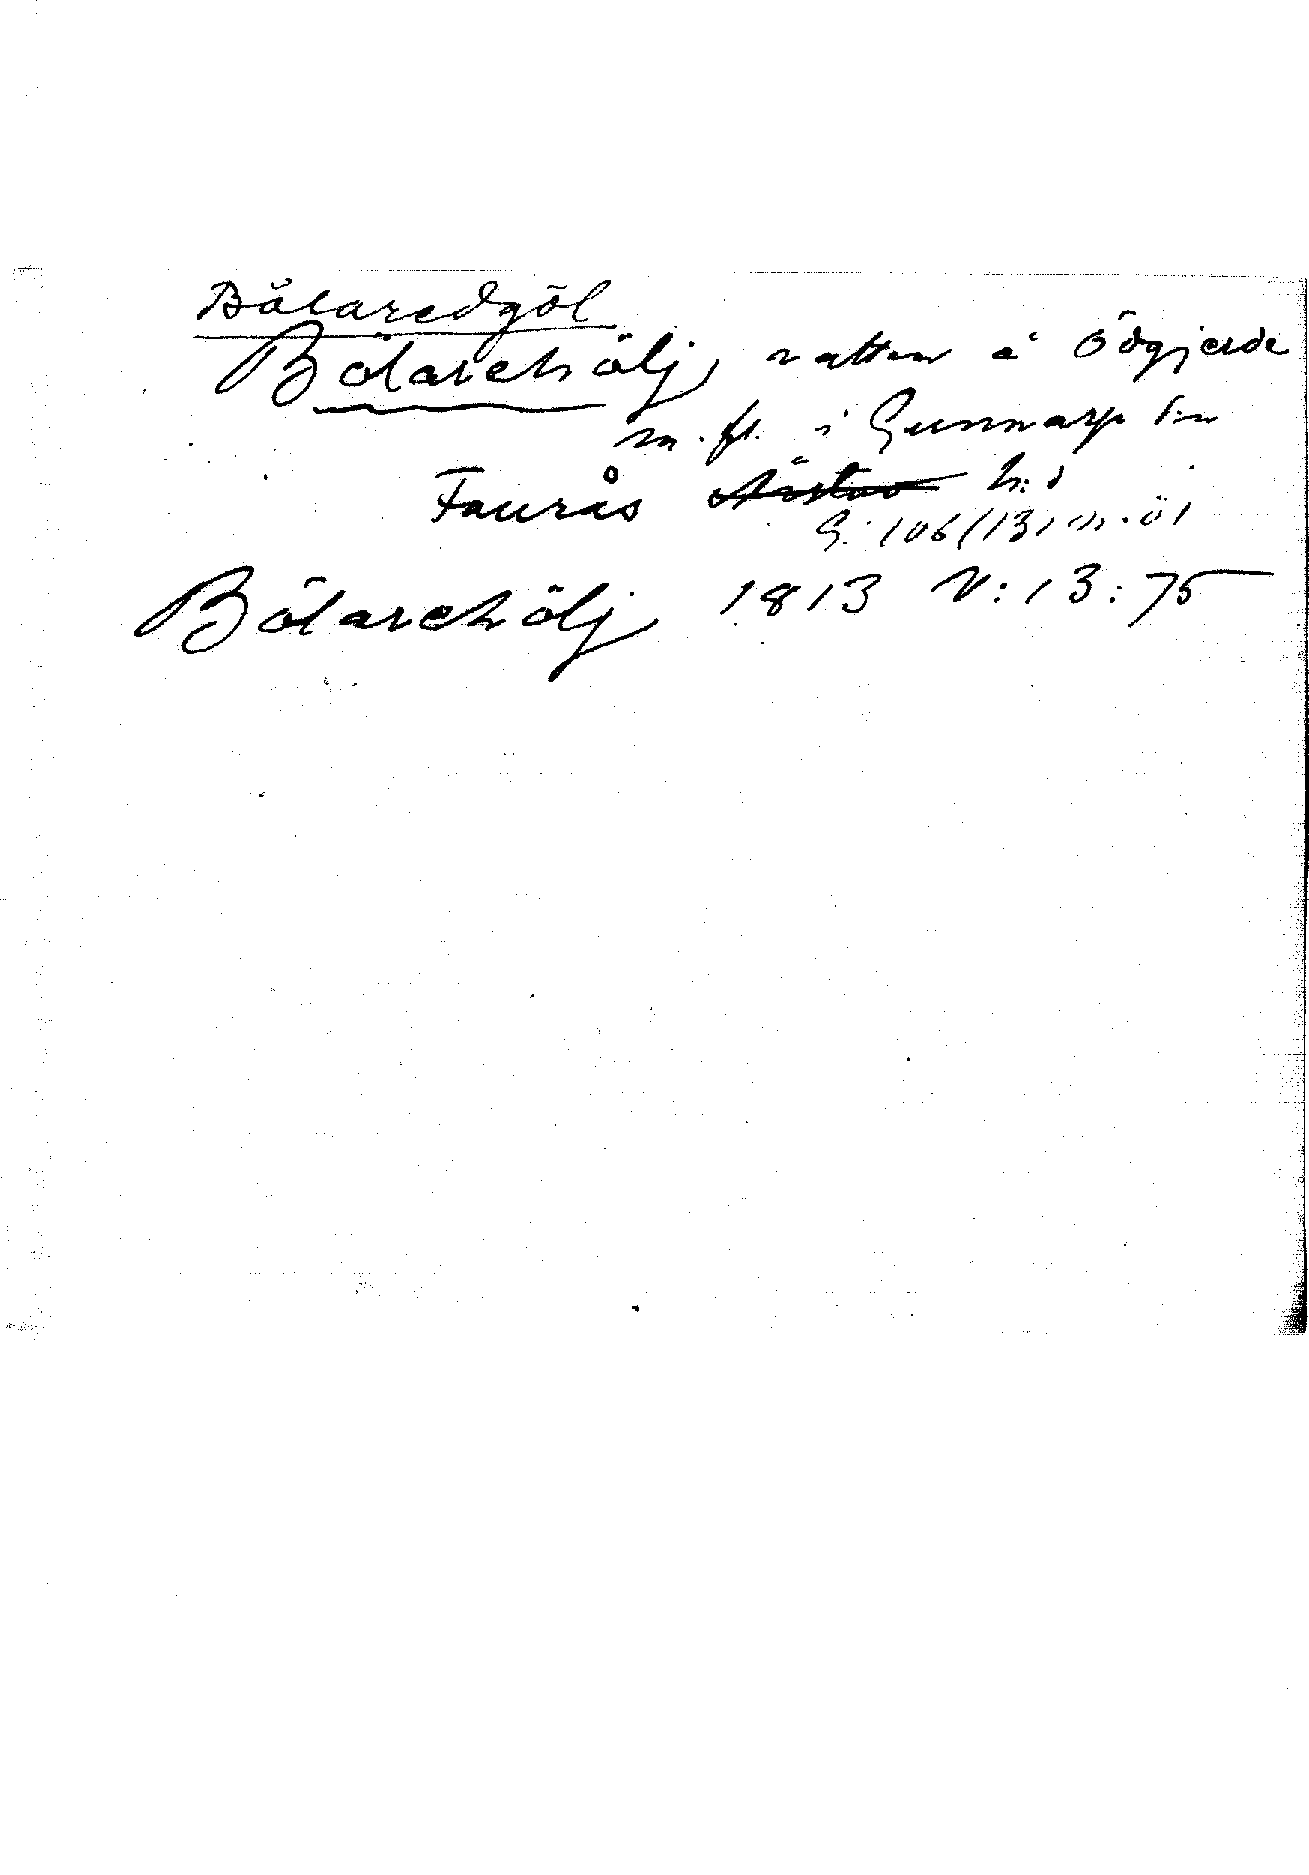 Bölaredgöl
Bölarehölj, vatten å Ödgjerde
m. fl. i Gunnarp sn
Faurås Årstad h:d
G: 106/131 m. öl
Bölarehölj 1813 V:13:75